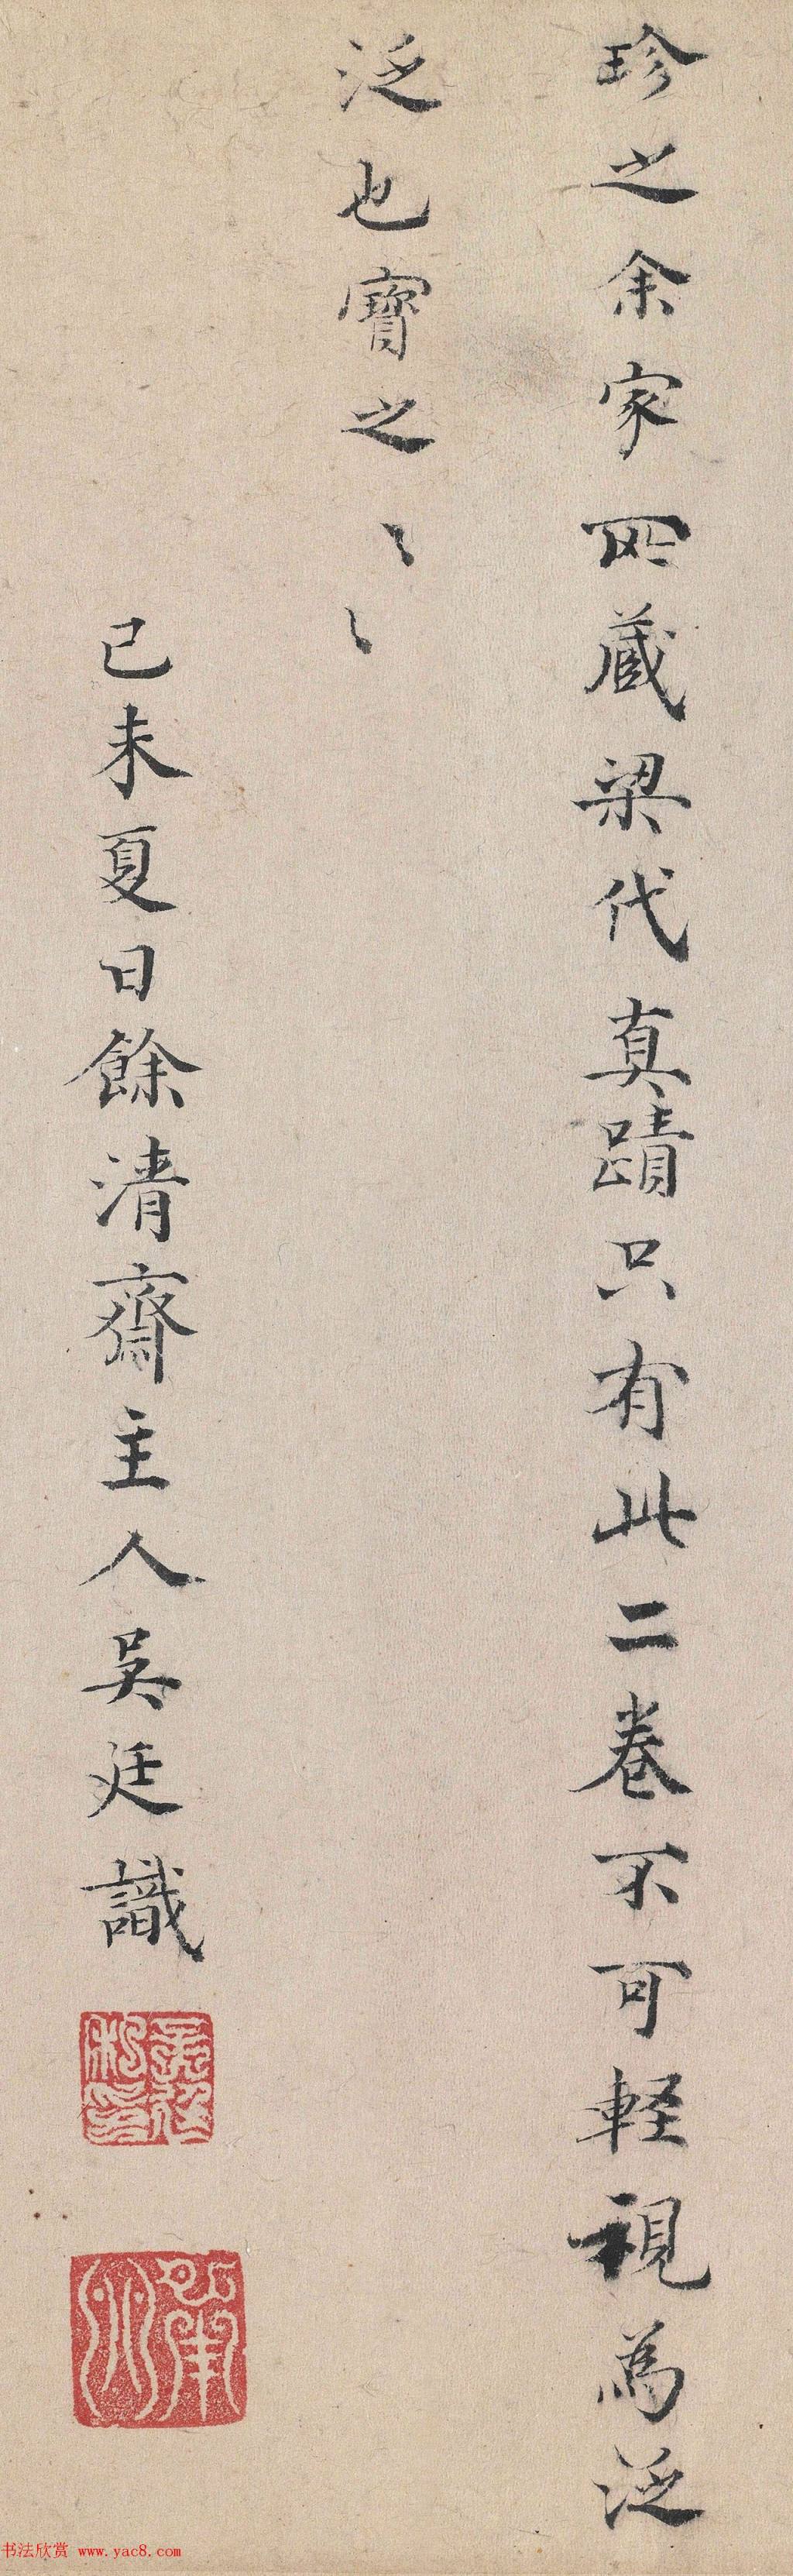 珍之余家所藏梁代真蹟只有此二卷不可軽視為泛
泛也寶之〻〻
己未夏日餘清齋主人吳廷識
书法欣赏 www.yac8.com